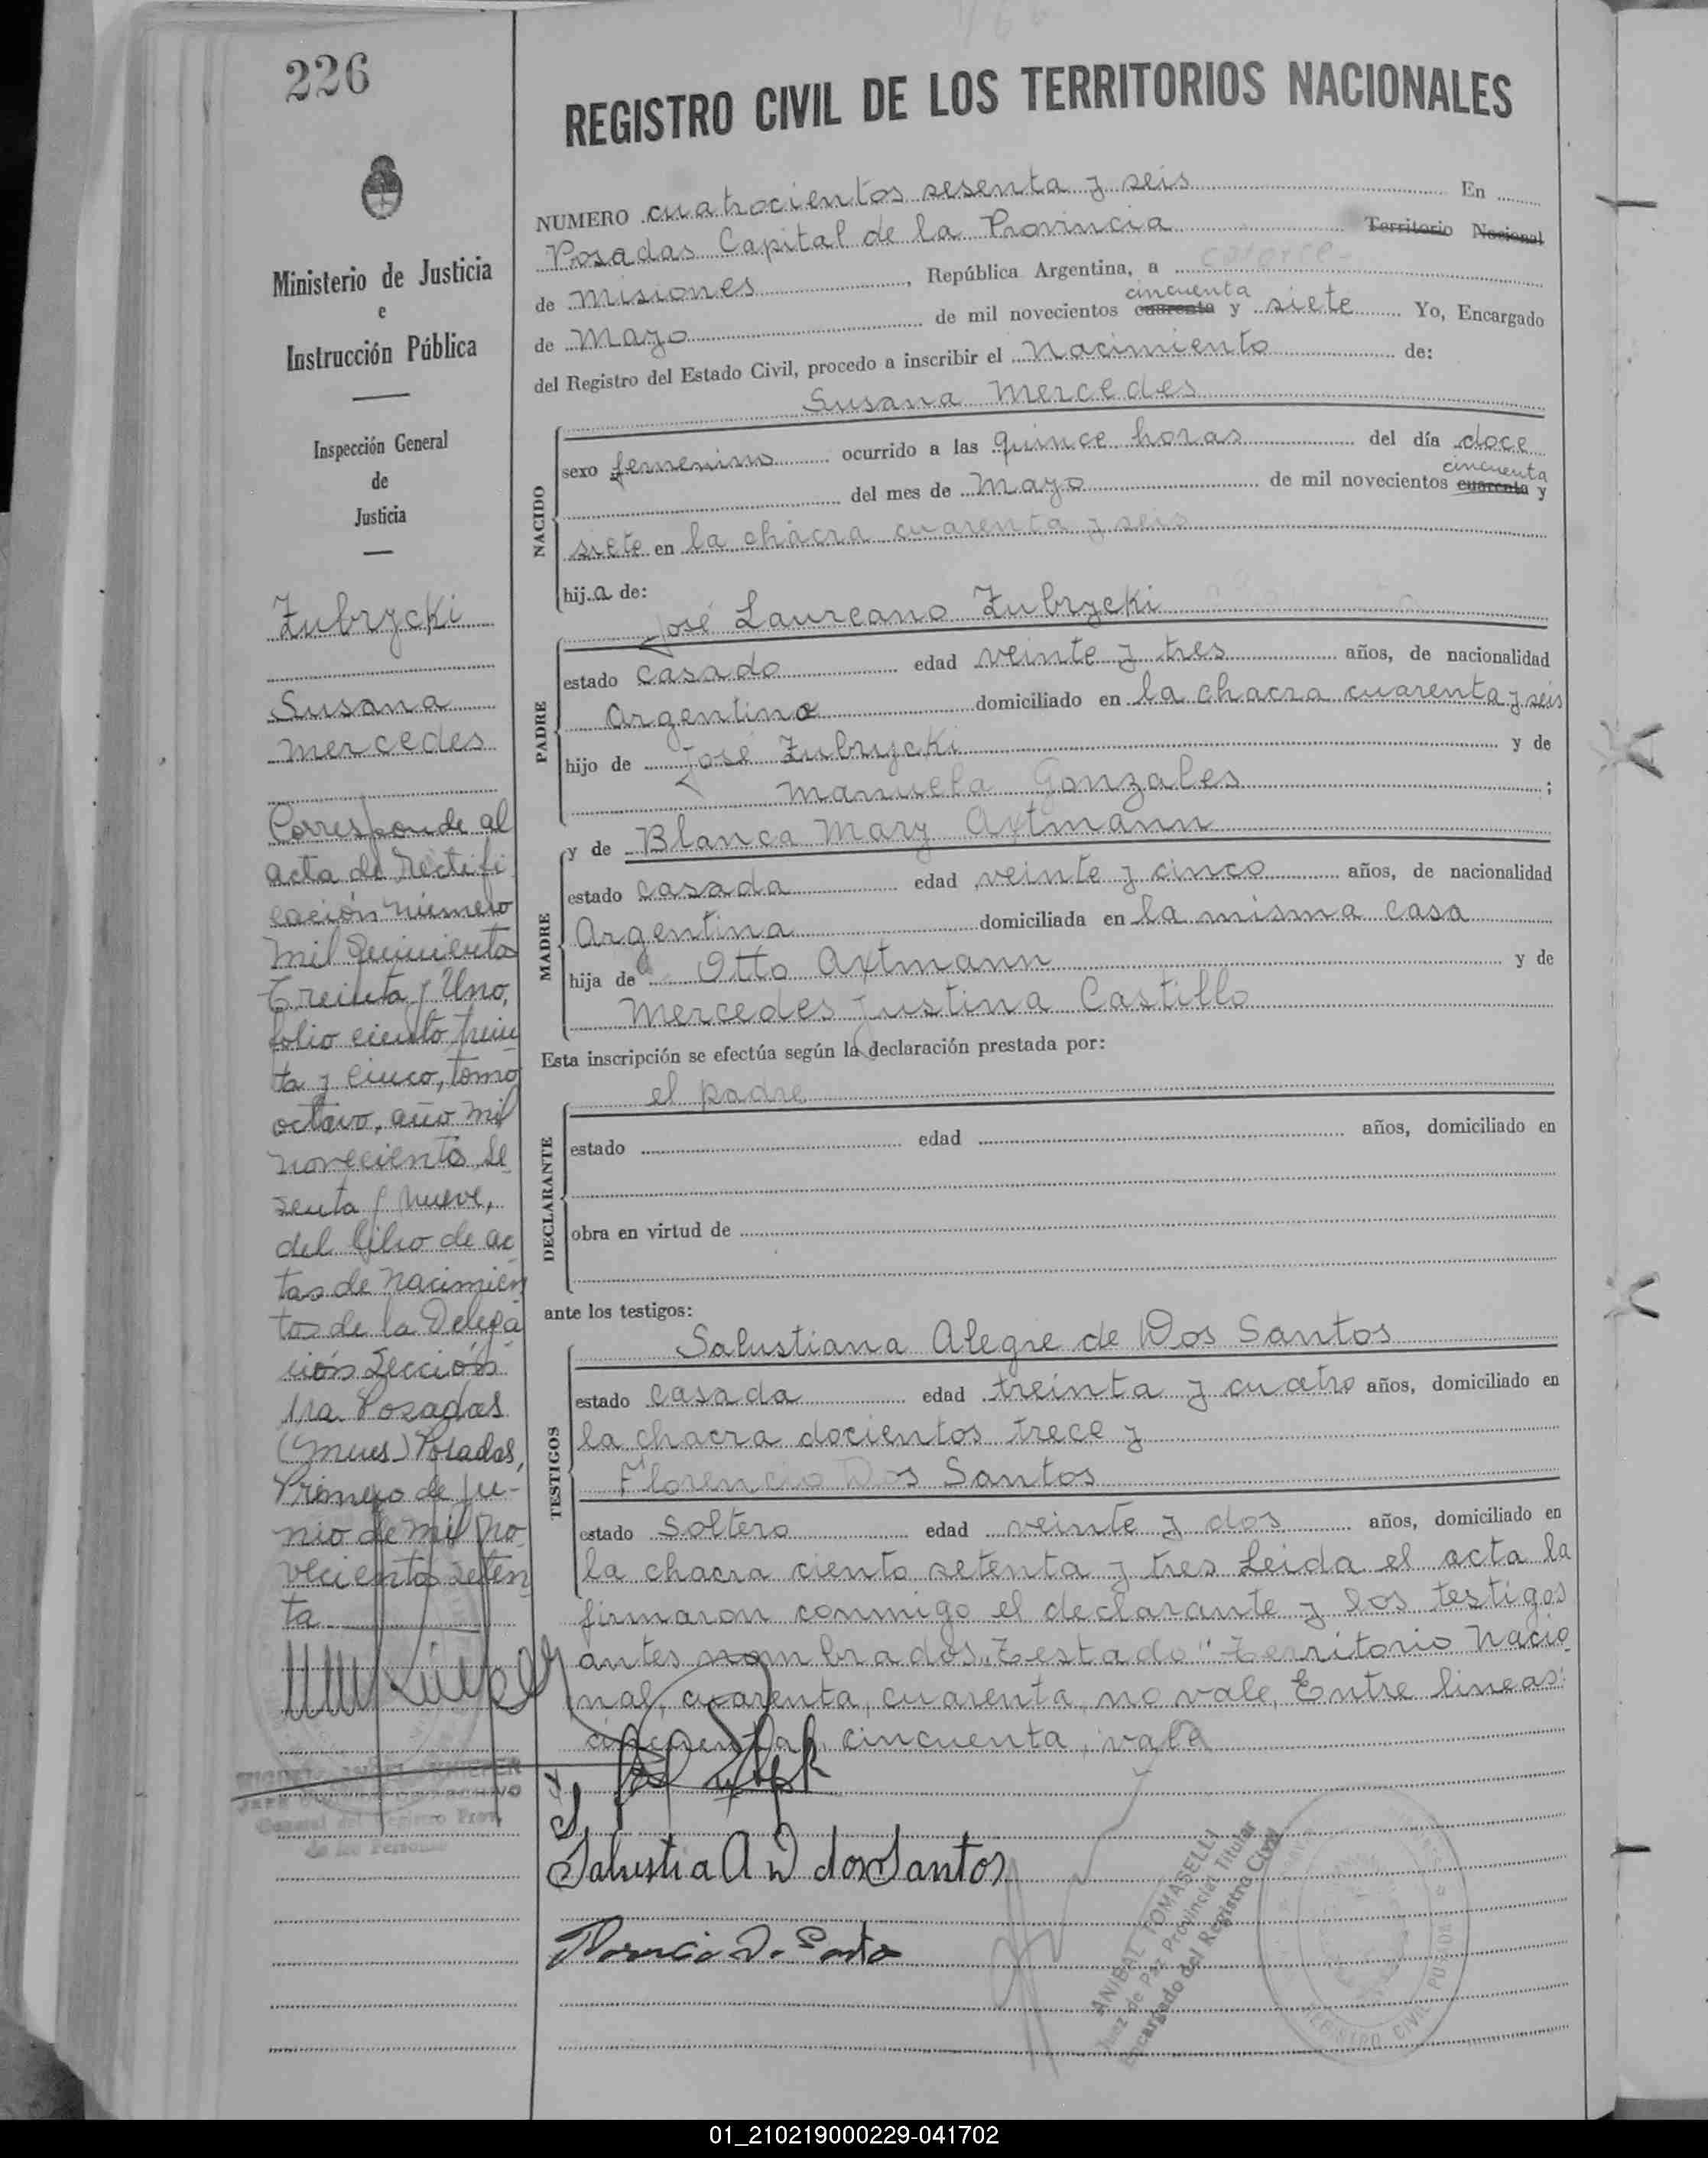 226
REGISTRO CIVIL DE LOS TERRITORIOS NACIONALES
Ministerio de Justicia
e
Instrucción Pública
Inspección General
de
Justicia
Zubrycki
Susana
Mercedes
Corresponde al
acta de rectifi
cación número
mil quinientos
treinta y Uno,
folio ciento trein
ta y cinco, tomo
octavo, año mil
novecientos se
senta y nueve,
del libro de ac
tas de nacimien
tos de la Delega
ción Sección
1ra Posadas
(Mnes) Posadas,
Primero de Ju-
nio de mil no
vecientos seten
ta
NUMERO cuatrocientos sesenta y seis En
Posadas Capital de la Provincia Territorio Nacional
de Misiones, República Argentina, a catorce
de Mayo de mil novecientos cuarenta cincuenta y siete Yo, Encargado
del Registro del Estado Civil, procedo a inscribir el Nacimiento de:
Susana Mercedes
NACIDO
sexo femenino ocurrido a las quince horas del día doce
del mes de Mayo de mil novecientos cuarenta cincuenta y
siete en la chacra cuarenta y seis
hija de:
José Laureano Zubrycki
PADRE
estado casado edad veinte y tres años, de nacionalidad
Argentina domiciliado en la chacra cuarenta y seis
hijo de José Zubrycki y de
Manuela Gonzales ;
y de Blanca Mary Axtmann
MADRE
estado casada edad veinte y cinco años, de nacionalidad
Argentina domiciliada en la misma casa
hija de Otto Axtmann y de
Mercedes Justina Castillo
Esta inscripción se efectúa según la declaración prestada por:
el padre
DECLARANTE
estado edad años, domiciliado en
obra en virtud de
ante los testigos:
Salustiana Alegre de Dos Santos
TESTIGOS
estado casada edad treinta y cuatro años, domiciliado en
la chacra docientos trece y
Florencio Dos Santos
estado soltero edad veinte y dos años, domiciliado en
la chacra ciento setenta y tres Leida el acta la
firmaron conmigo el declarante y los testigos
antes nombrados. Testado "Territorio Nacio
nal, cuarenta, cuarenta, no vale, Entre lineas:
cincuenta, cincuenta, vale
Salustia A D dos Santos
ANIBAL TOMASELLI
Juez de Paz Provincial Titular
Encargado del Registro Civil
REGISTRO CIVIL
01_210219000229-041702